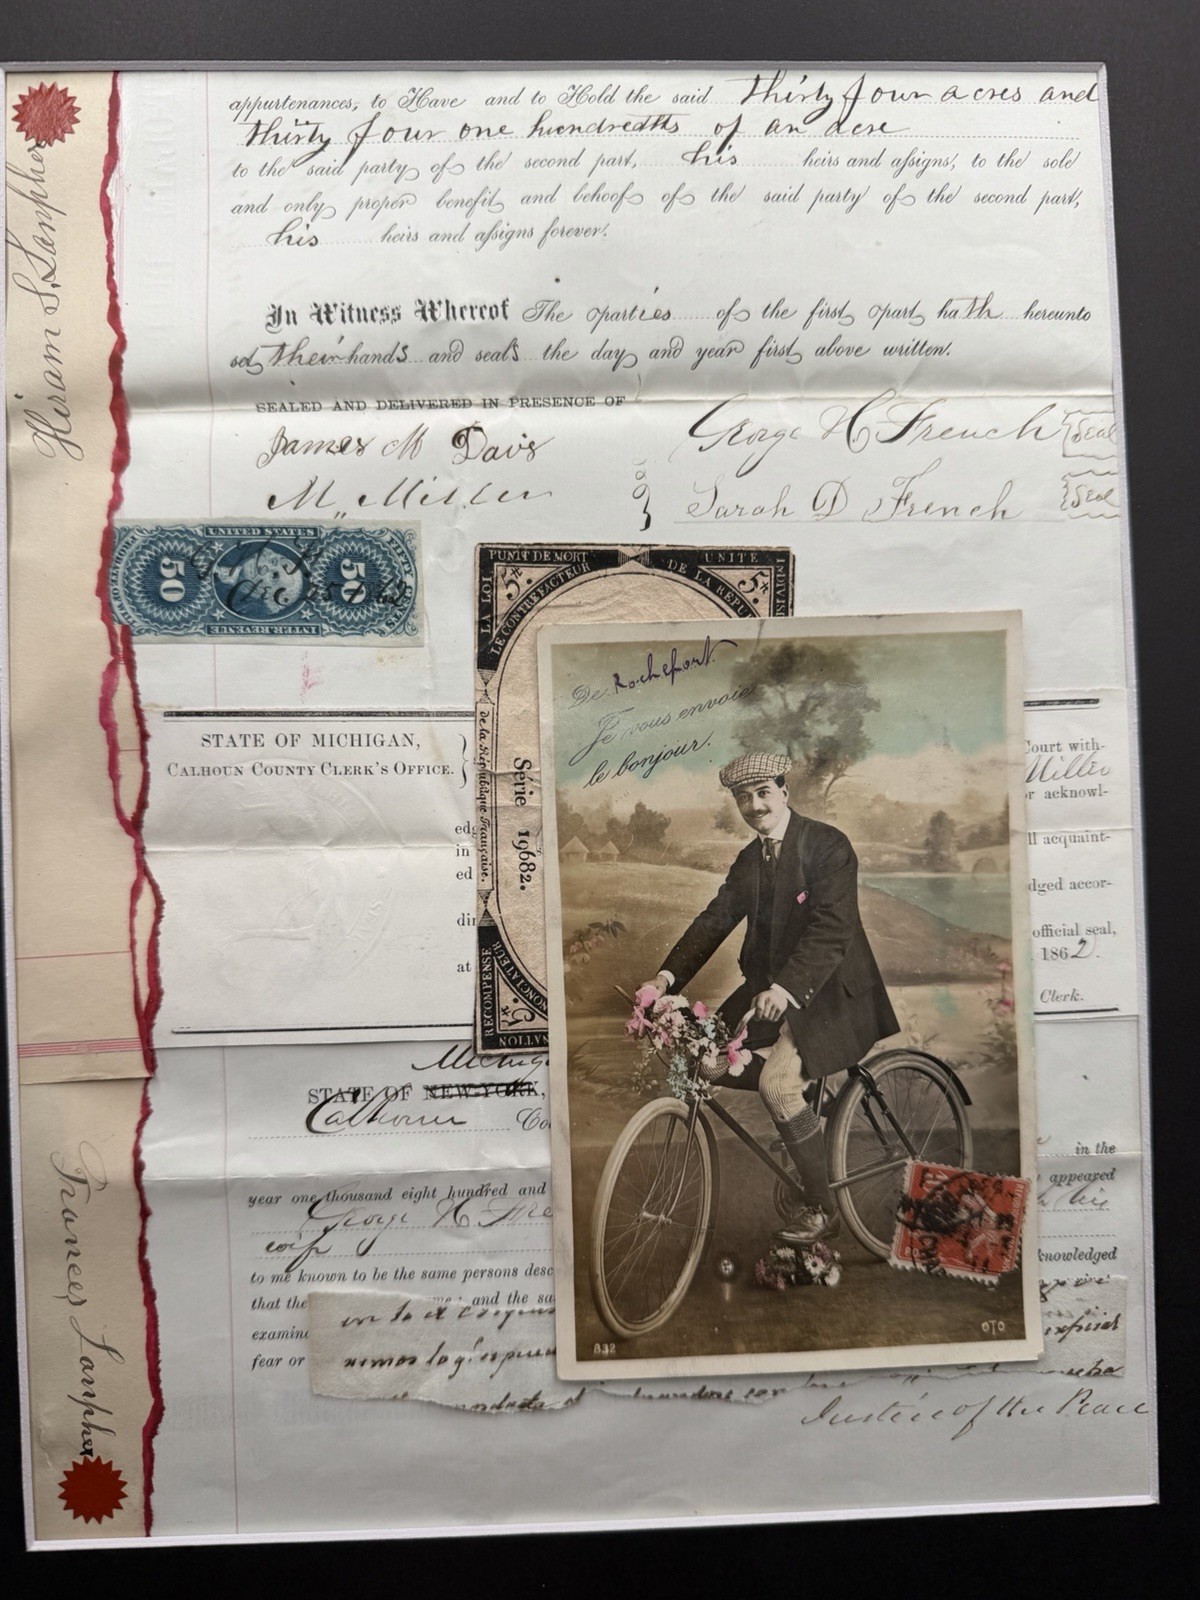 appurtenances, to Have and to Hold the said thirty four acres and
thirty four one hundredths of an acre
to the said party of the second part, his heirs and assigns, to the sole
and only proper benefit and behoof of the said party of the second part,
his heirs and assigns forever.
In Witness Whereof The parties of the first part hath hereunto
set their hands and seals the day and year first above written.
SEALED AND DELIVERED IN PRESENCE OF
James M Davis
M. Miller
George H French Seal
Sarah D French Seal
Hiram S. Lanpher
UNITED STATES
50
50
INTER. REVENUE
STATE OF MICHIGAN,
CALHOUN COUNTY CLERK'S OFFICE.
PUNIT DE MORT
UNITE
LA LOI
LE CONTREFACTEUR
DE LA REPU
INDIVIS
5
5
de la République Française.
Série 19682.
RECOMPENSE
NONCIATEUR
NATION
De Rochefort
Je vous envoie
le bonjour.
832
OTO
Court with-
Miller
or acknowl-
ll acquaint-
dged accor-
official seal,
1862.
Clerk.
edg
in
ed
din
at
Michig
STATE OF NEW-YORK,
Calhoun Co
in the
year one thousand eight hundred and
appeared
George H Fre
his
wife
to me known to be the same persons desc
knowledged
that the
and the sa
examine
fear or
Justice of the Peace
Frances Lanpher